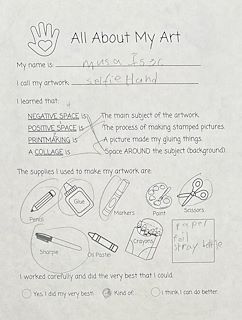 All About My Art
My name is musa
I call my artwork selfie Hand
I learned that:
NEGATIVE SPACE is The main subject of the artwork.
POSITIVE SPACE is The process of making stamped pictures.
PRINTMAKING is A picture made my glueing things.
A COLLAGE is Space AROUND the subject (background).
The supplies I used to make my artwork are:
Pencil Glue Markers Paint Scissors
Sharpie Oil Pastel Crayons paper
foil
I worked carefully and did the very best that I could.
Yes I did my very best. Kind of. I think I can do better.